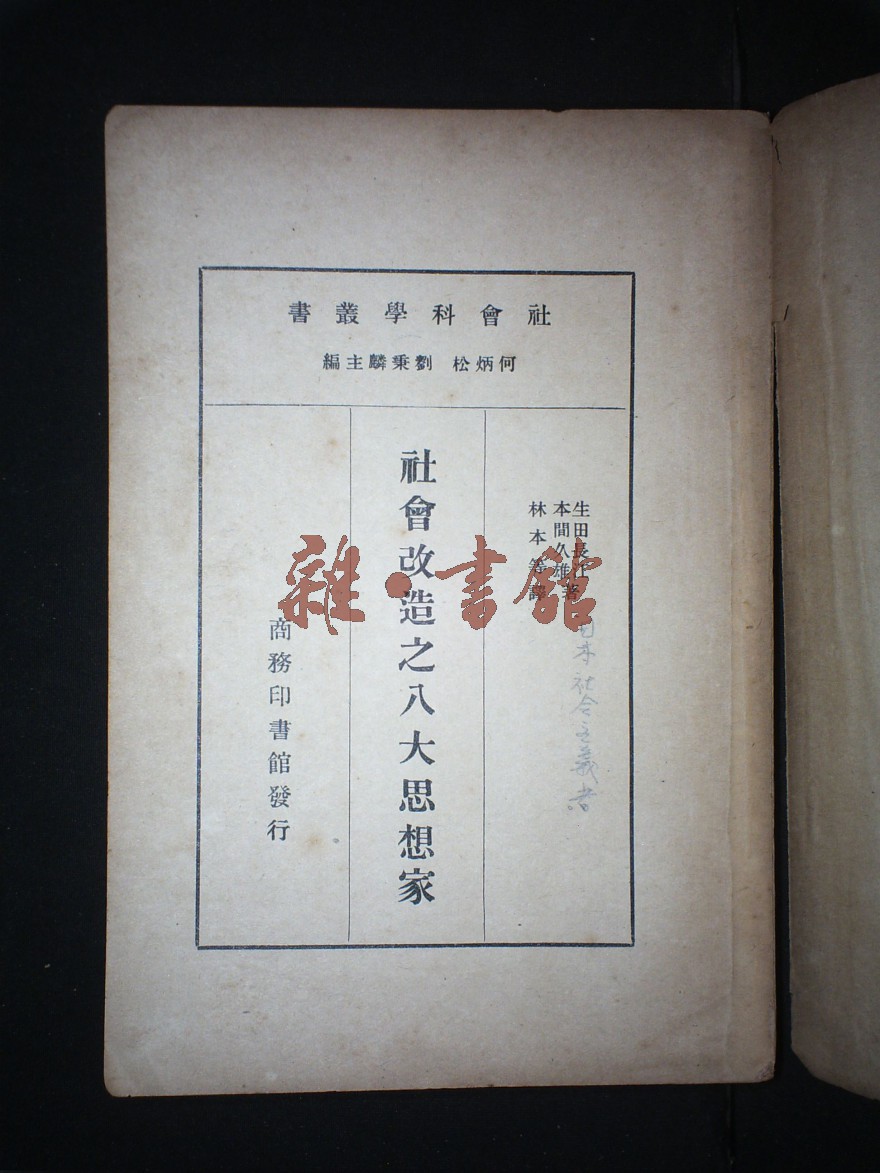 社會科學叢書
何炳松 劉秉麟主編
生田長江
本間久雄著
林本等譯
日本社会主義者
社會改造之八大思想家
商務印書館發行
雜·書館